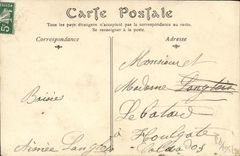 Carte Postale
Tous les pays étrangers n'acceptent pas la correspondance au recto.
Se renseigner à la poste.
Correspondance
Adresse
Monsieur et
Madame Langlois
à Houlgate
Calvados
Aimée Langlois